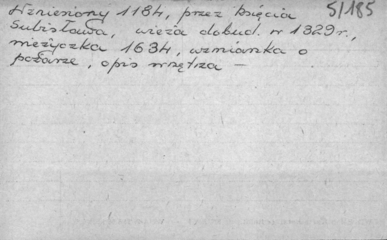 Wzniesiony 1184, przez księcia 5/185
Subisława, wieża dobud. w 1329 r.,
wieżyczka 1634, wzmianka o
pożarze, opis wnętrza —